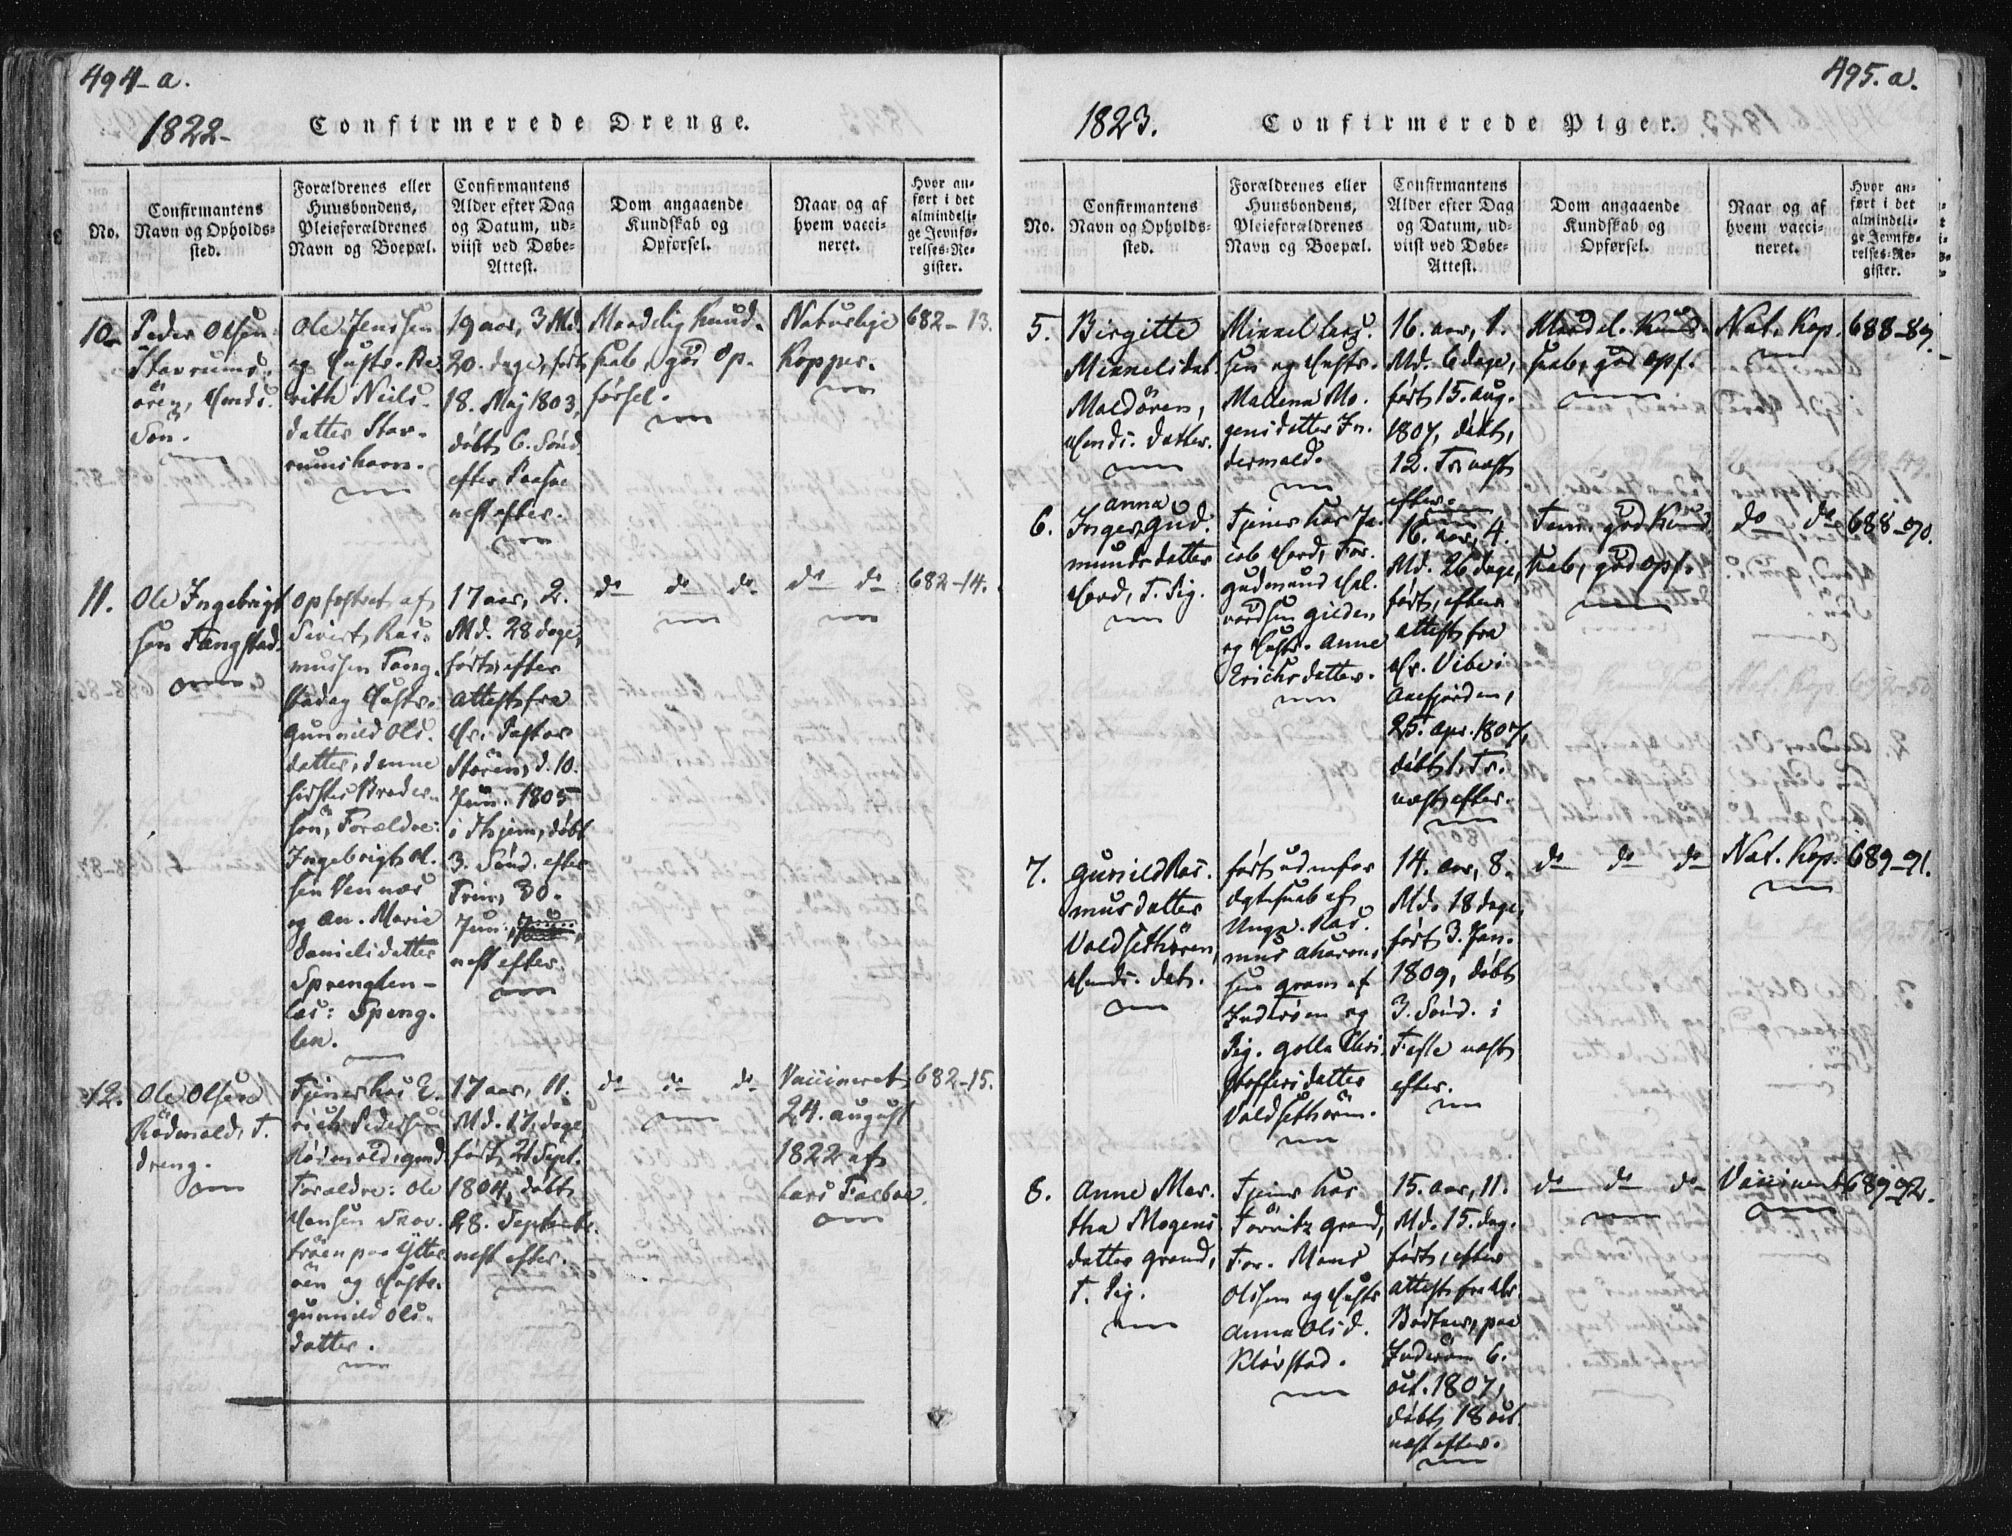 494-a.
1822-
Confirmerede Drenge.
No.
Confirmantens
Navn og Opholds-
sted.
Forældrenes eller
Huusbondens,
Pleieforældrenes
Navn og Boepæl.
Confirmantens
Alder efter Dag
og Datum, ud-
viist ved Døbe-
Attest.
Dom angaaende
Kundskab og
Opførsel.
Naar og af
hvem vacci-
neret.
Hvor an-
ført i det
almindeli-
ge Jevnfø-
relses-Re-
gister.
10.
Peder Olsen
Ole Jenssen
og Hustr. Be-
rith Niels-
datter
19 aar, 3 Md.
20. dage, født
18. Maj 1803,
døbt 6. Sönd.
efter Paaske
nest efter.
Maadelig Kund-
skab, god Op-
førsel.
Naturlige
Kopper.
682-13.
11.
Ole Ingebrigt
sen Tangstad.
opfostret af
Sivert Ras-
mussen Tang-
stad og Hustr.
Gunnild Ols-
datter, denne
Forældre:
Ingebrigt Ol-
sen Vennes
og An. Marie
Danielsdatter
17 aar, 2.
Md. 28 dage,
født, efter
Attest fra
Hr. Pastor
Stören, d. 10.
Jun. 1805
døbt
3. Sönd. efter
Trin, 30.
Jun.
nest efter.
do do do
do do
682-14.
12.
Ole Olsen
Rödmald, T.
dreng.
Tjener hos E-
rich Pedersen
Forældre: Ole
Hansen
paa Ytter
öen og Hustr.
Gunnild Ols-
datter.
17 aar, 11.
Md. 17. dage
født, 21 Sept.
1804, døbt
28. Septembr.
nest efter.
do do do
Vaccineret
24. August
1822 af
Lars
682-15.
495. a.
1823.
Confirmerede Piger.
No.
Confirmantens
Navn og Opholds-
sted.
Forældrenes eller
Huusbondens,
Pleieforældrenes
Navn og Boepæl.
Confirmantens
Alder efter Dag
og Datum, ud-
viist ved Døbe-
Attest.
Dom angaaende
Kundskab og
Opførsel.
Naar og af
hvem vacci-
neret.
Hvor an-
ført i det
almindeli-
ge Jevnfø-
relses-Re-
gister.
5.
Birgitte
Mikkelsdat.
Maldören,
Huusm. datter.
Mikkel
sen og Hustr.
Malena Mo-
gensdatter In-
dermald.
16. aar, 1.
Md. 6 dage,
født 15. Aug.
1807, døbt,
12. Tr næst
efter.
Maadel. Kund-
skab, god opf.
Nat. Kop.
688-89.
6.
Anna
Inger Gud-
mundsdatter
Hord, T. Pig.
Tjener hos Ja-
cob Hord, For.
Gudmund Hal-
vordsen Gilden
og Hustr. Anne
Erichsdatter.
16. aar, 4.
Md. 26 dage,
født, efter
attest fra
Hr. Vibe i
Aafjorden,
25. apr. 1807,
døbt 1. Tr.
næst efter.
god Kund-
skab, god opf.
do do
688-90.
7.
Gunild Ras-
musdatter
Valdsethören,
Huusm. dat.
født udenfor
ægteskab af
Ungk. Ras-
mus Aharons
sen Gram af
Inderöen og
Pig. Golla Chri-
stoffersdatter
Valdsethören.
14. aar, 8.
Md. 18 dage,
født 3. Jan.
1809, døbt
3. Sönd. i
Faste næst
efter.
do do do
Nat. Kop.
689-91.
8.
Anne Mar-
tha Mogens
datter Grand,
T. Pig.
Tjener hos
Grand,
For. Mons
Olsen og Hustr
Anna Olsd.
Klörstad.
15. aar, 11.
Md. 15. dag.
født, efter
attest fra Hr
paa
Inderöen 6.
oct. 1807,
døbt, 18 oct.
næst efter.
do do do
Vaccineret
689-92.